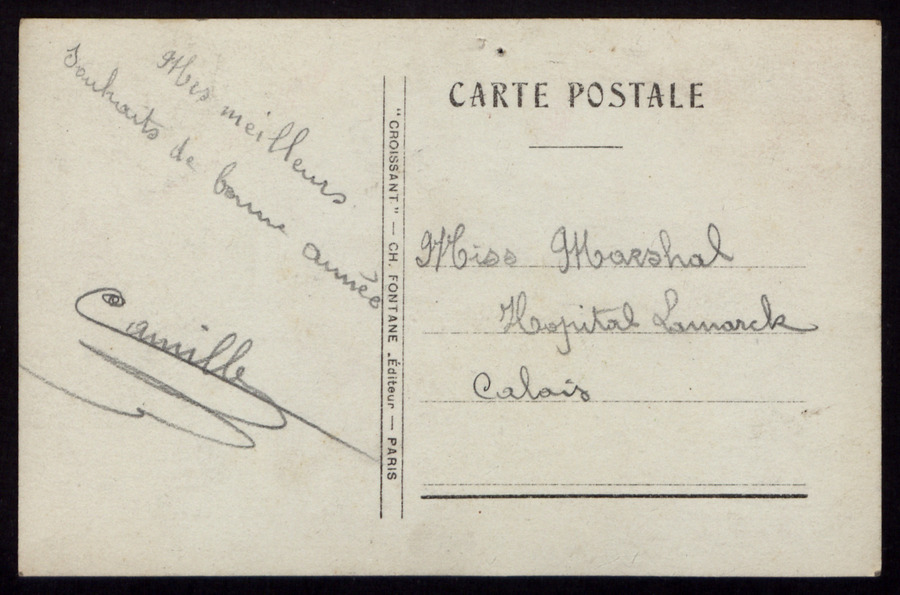 Mes meilleurs
souhaits de bonne année
Camille
"CROISSANT" — CH. FONTANE . Éditeur — PARIS
CARTE POSTALE
Miss Marshal
Hopital Lamarck
Calais